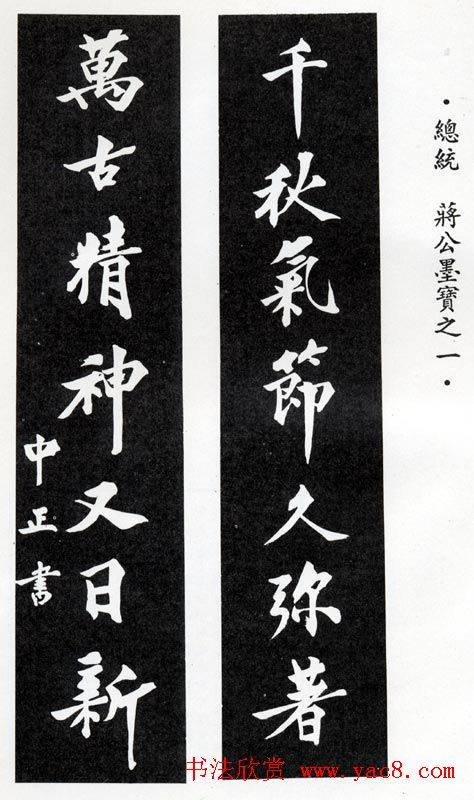 •總統 蔣公墨寶之一•
千秋氣節久弥著
萬古精神又日新
中正書
书法欣赏 www.yac8.com